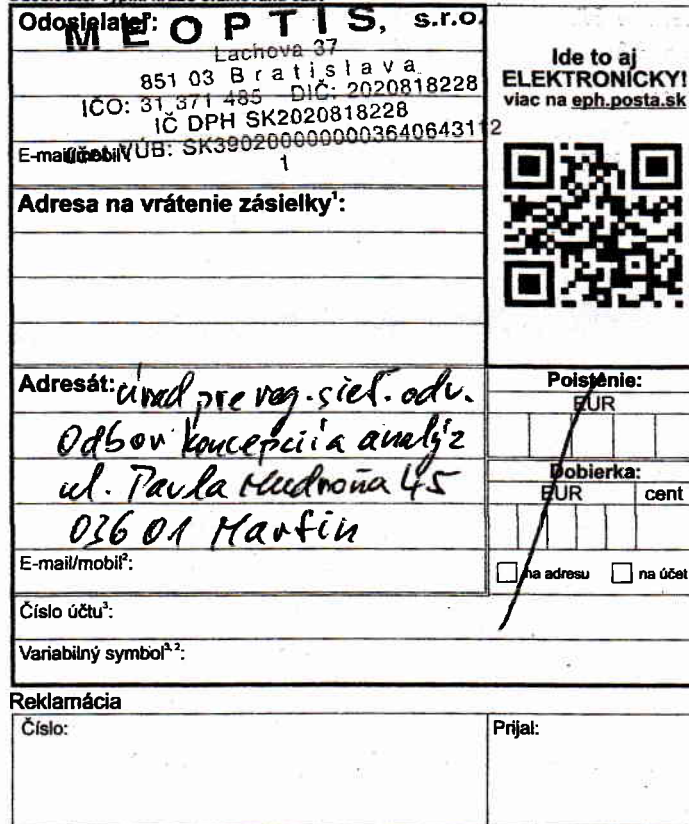 Odosielateľ:
MEOPTIS, s.r.o.
Lachova 37
851 03 Bratislava
IČO: 31 371 485 DIČ: 2020818228
IČ DPH SK2020818228
VÚB: SK3902000000003640643112
E-mail/mobil
1
Ide to aj
ELEKTRONICKY!
viac na eph.posta.sk
Adresa na vrátenie zásielky¹:
Adresát: Úrad pre reg. sieť. odv.
Odbor koncepcií a analýz
ul. Pavla Mudroňa 45
036 01 Martin
E-mail/mobil²:
Číslo účtu³:
Variabilný symbol³,²:
Poistenie:
EUR
Dobierka:
EUR cent
na adresu na účet
Reklamácia
Číslo:
Prijal: